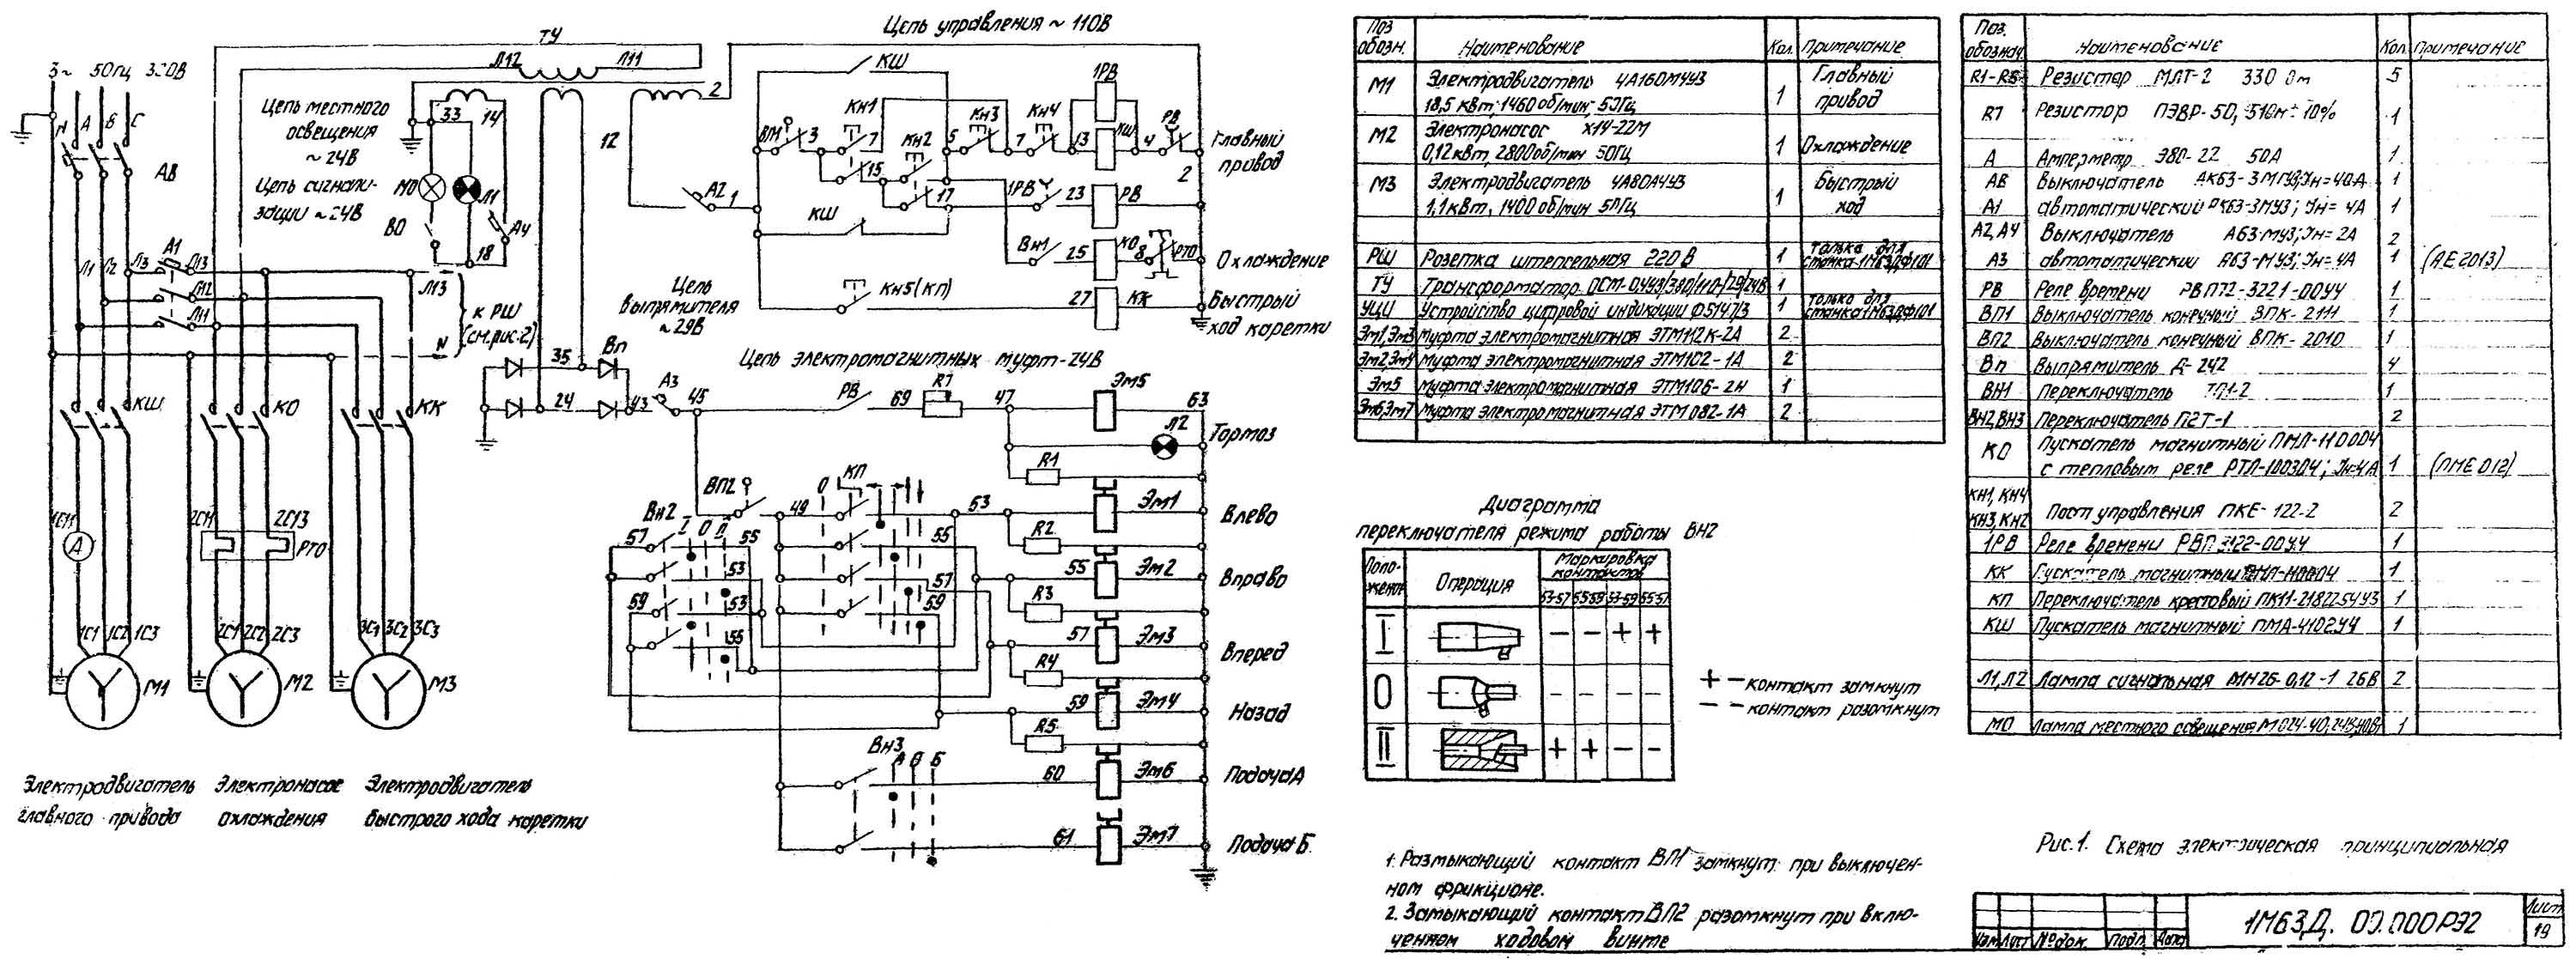 Цепь управления ~ 110В
ТУ
Л12
Л11
2
3~ 50Гц 380В
N
А
В
С
АВ
Цепь местного
освещения
~ 24В
Цепь сигнали-
зации ~24В
33
14
МО
Л1
ВО
А4
18
12
А2
1
КШ
ВП1
3
КН1
7
КН2
15
17
5
КН3
7
КН4
13
1РВ
КШ
4
РВ
2
Главный
привод
1РВ
23
РВ
КШ
ВН1
25
КО
8
РТО
Охлаждение
КН5(КП)
27
КК
Быстрый
ход каретки
Л1
Л2
Л3
А1
Л13
Л12
Л11
Л13
N
К РШ
(см.рис.2)
Цепь
выпрямителя
~29В
35
Вп
24
43
А3
45
Цепь электромагнитных муфт-24В
РВ
69
R7
47
Эм5
63
Л2
Тормоз
R1
КШ
КО
КК
ВП2
49
О
КП
53
Эм1
Влево
R2
ВН2
I О II
57
55
53
59
53
55
55
57
59
55
Эм2
Вправо
R3
57
Эм3
Вперед
R4
59
Эм4
Назад
R5
ВН3
А О Б
60
Эм6
Подача А
61
Эм7
Подача Б
1С11
А
2С11
2С13
РТО
1С1
1С2
1С3
2С1
2С2
2С3
3С1
3С2
3С3
М1
М2
М3
Электродвигатель
главного привода
Электронасос
охлаждения
Электродвигатель
быстрого хода каретки
Поз обозн. Наименование Кол. Примечание
М1 Электродвигатель 4А160М4У3
18,5 квт; 1460 об/мин; 50Гц 1 Главный привод
М2 Электронасос Х14-22М
0,12 квт, 2800 об/мин 50Гц 1 Охлаждение
М3 Электродвигатель 4А80А4У3
1,1 квт, 1400 об/мин 50Гц 1 Быстрый ход
РШ Розетка штепсельная 220 В 1 только для станка 1М63ДФ101
ТУ Трансформатор ОСМ-0,4У3/380/110/29/24В 1
УЦИ Устройство цифровой индикации Ф5147/3 1 только для станка 1М63ДФ101
Эм1,Эм3 Муфта электромагнитная ЭТМ112К-2А 2
Эм2,Эм4 Муфта электромагнитная ЭТМ102-1А 2
Эм5 Муфта электромагнитная ЭТМ106-2Н 1
Эм6,Эм7 Муфта электромагнитная ЭТМ082-1А 2
Диаграмма
переключателя режима работы ВН2
Поло-
жение
Операция
Маркировка
контактов
53-57 55-59 53-59 55-57
I − − + +
О − − − −
II + + − −
+ − контакт замкнут
− − контакт разомкнут
1. Размыкающий контакт ВП1 замкнут при выключен-
ном фрикционе.
2. Замыкающий контакт ВП2 разомкнут при вклю-
ченном ходовом винте
Поз. обознач. Наименование Кол. Примечание
R1-R5 Резистор МЛТ-2 330 Ом 5
R7 Резистор ПЭВР-50, 51Ом ± 10% 1
А Амперметр Э80-22 50А 1
АВ Выключатель АК63-3МГУ3; Iн=40А 1
А1 автоматический АК63-3МУ3; Iн= 4А 1
А2, А4 Выключатель А63-МУ3; Iн= 2А 2
А3 автоматический А63-МУ3; Iн= 4А 1 (АЕ2013)
РВ Реле времени РВП72-3221-00У4 1
ВП1 Выключатель конечный ВПК-2111 1
ВП2 Выключатель конечный ВПК-2010 1
Вп Выпрямитель Д-242 4
ВН1 Переключатель ТП1-2 1
ВН2,ВН3 Переключатель П2Т-1 2
КО Пускатель магнитный ПМЛ-110004
с тепловым реле РТЛ-100304; Iн=4А 1 (ПМЕ012)
КН1, КН4
КН3, КН2 Пост управления ПКЕ-122-2 2
1РВ Реле времени РВП 3122-00У4 1
КК Пускатель магнитный 1
КП Переключатель крестовый ПК11-2182254У3 1
КШ Пускатель магнитный ПМА-4102У4 1
Л1, Л2 Лампа сигнальная МН26-0,12-1 26В 2
МО Лампа местного освещения МО24-40, 24В, 40Вт 1
Рис.1. Схема электрическая принципиальная
Изм Лист № док. Подп. Дата
1М63Д. 00.000РЭ2
Лист
19